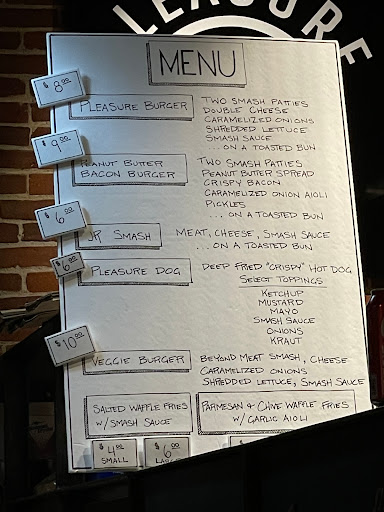 LEASURE
MENU
$8.00
PLEASURE BURGER
TWO SMASH PATTIES
DOUBLE CHEESE
CARAMELIZED ONIONS
SHREDDED LETTUCE
SMASH SAUCE
...ON A TOASTED BUN
$9.00
PEANUT BUTTER
BACON BURGER
TWO SMASH PATTIES
PEANUT BUTTER SPREAD
CRISPY BACON
CARAMELIZED ONION AIOLI
PICKLES
...ON A TOASTED BUN
$6.00
JR SMASH
MEAT, CHEESE, SMASH SAUCE
...ON A TOASTED BUN
$6.00
PLEASURE DOG
DEEP FRIED "CRISPY" HOT DOG
SELECT TOPPINGS
KETCHUP
MUSTARD
MAYO
SMASH SAUCE
ONIONS
KRAUT
$10.00
VEGGIE BURGER
BEYOND MEAT SMASH, CHEESE
CARAMELIZED ONIONS
SHREDDED LETTUCE, SMASH SAUCE
SALTED WAFFLE FRIES
W/ SMASH SAUCE
$4.00
SMALL
$6.00
PARMESAN & CHIVE WAFFLE FRIES
W/ GARLIC AIOLI